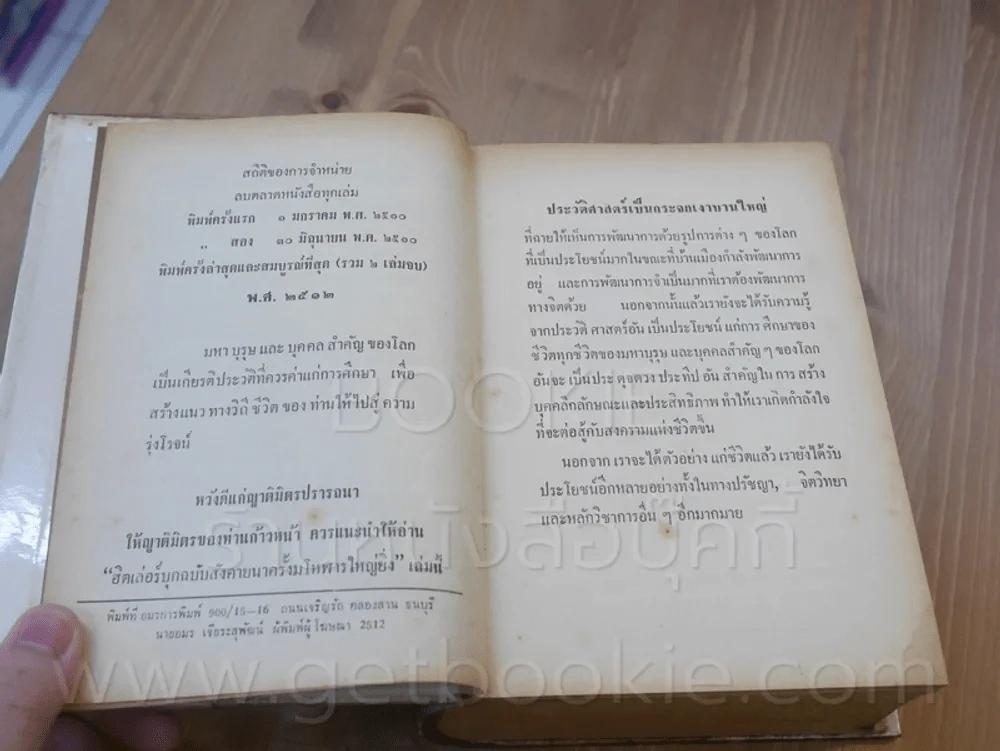 สถิติของการจำหน่าย
ลบตลาดหนังสือทุกเล่ม
พิมพ์ครั้งแรก ๑ มกราคม พ.ศ. ๒๕๑๐
,, สอง ๓๐ มิถุนายน พ.ศ. ๒๕๑๐
พิมพ์ครั้งล่าสุดและสมบูรณ์ที่สุด (รวม ๒ เล่มจบ)
พ.ศ. ๒๕๑๒
มหา บุรุษ และ บุคคล สำคัญ ของโลก
เป็นเกียรติประวัติที่ควรค่าแก่การศึกษา เพื่อ
สร้างแนว ทางวิถี ชีวิต ของ ท่านให้ไปสู่ ความ
รุ่งโรจน์
หวังดีแก่ญาติมิตรปรารถนา
ให้ญาติมิตรของท่านก้าวหน้า ควรแนะนำให้อ่าน
“ฮิตเล่อร์บุกฉบับสังคายนาครั้งมโหฬารใหญ่ยิ่ง” เล่มนี้
พิมพ์ที่ อมรการพิมพ์ 900/15-16 ถนนเจริญรัถ คลองสาน ธนบุรี
นายอมร เจือระสุพัฒน์ ผู้พิมพ์ผู้โฆษณา 2512
ประวัติศาสตร์เป็นกระจกเงาบานใหญ่
ที่ฉายให้เห็นการพัฒนาการด้วยรูปการต่าง ๆ ของโลก
ที่เป็นประโยชน์มากในขณะที่บ้านเมืองกำลังพัฒนาการ
อยู่ และการพัฒนาการจำเป็นมากที่เราต้องพัฒนาการ
ทางจิตด้วย นอกจากนั้นแล้วเรายังจะได้รับความรู้
จากประวัติ ศาสตร์อัน เป็นประโยชน์ แก่การ ศึกษาของ
ชีวิตทุกชีวิตของมหาบุรุษ และบุคคลสำคัญ ๆ ของโลก
อันจะ เป็นประ ดุจดวง ประทีป อัน สำคัญใน การ สร้าง
บุคคลิกลักษณะและประสิทธิภาพ ทำให้เราเกิดกำลังใจ
ที่จะต่อสู้กับสงครามแห่งชีวิตขึ้น
นอกจาก เราจะได้ตัวอย่าง แก่ชีวิตแล้ว เรายังได้รับ
ประโยชน์อีกหลายอย่างทั้งในทางปรัชญา, จิตวิทยา
และหลักวิชาการอื่น ๆ อีกมากมาย
BOOKIE
ร้านหนังสือบุ๊คกี้
www.getbookie.com